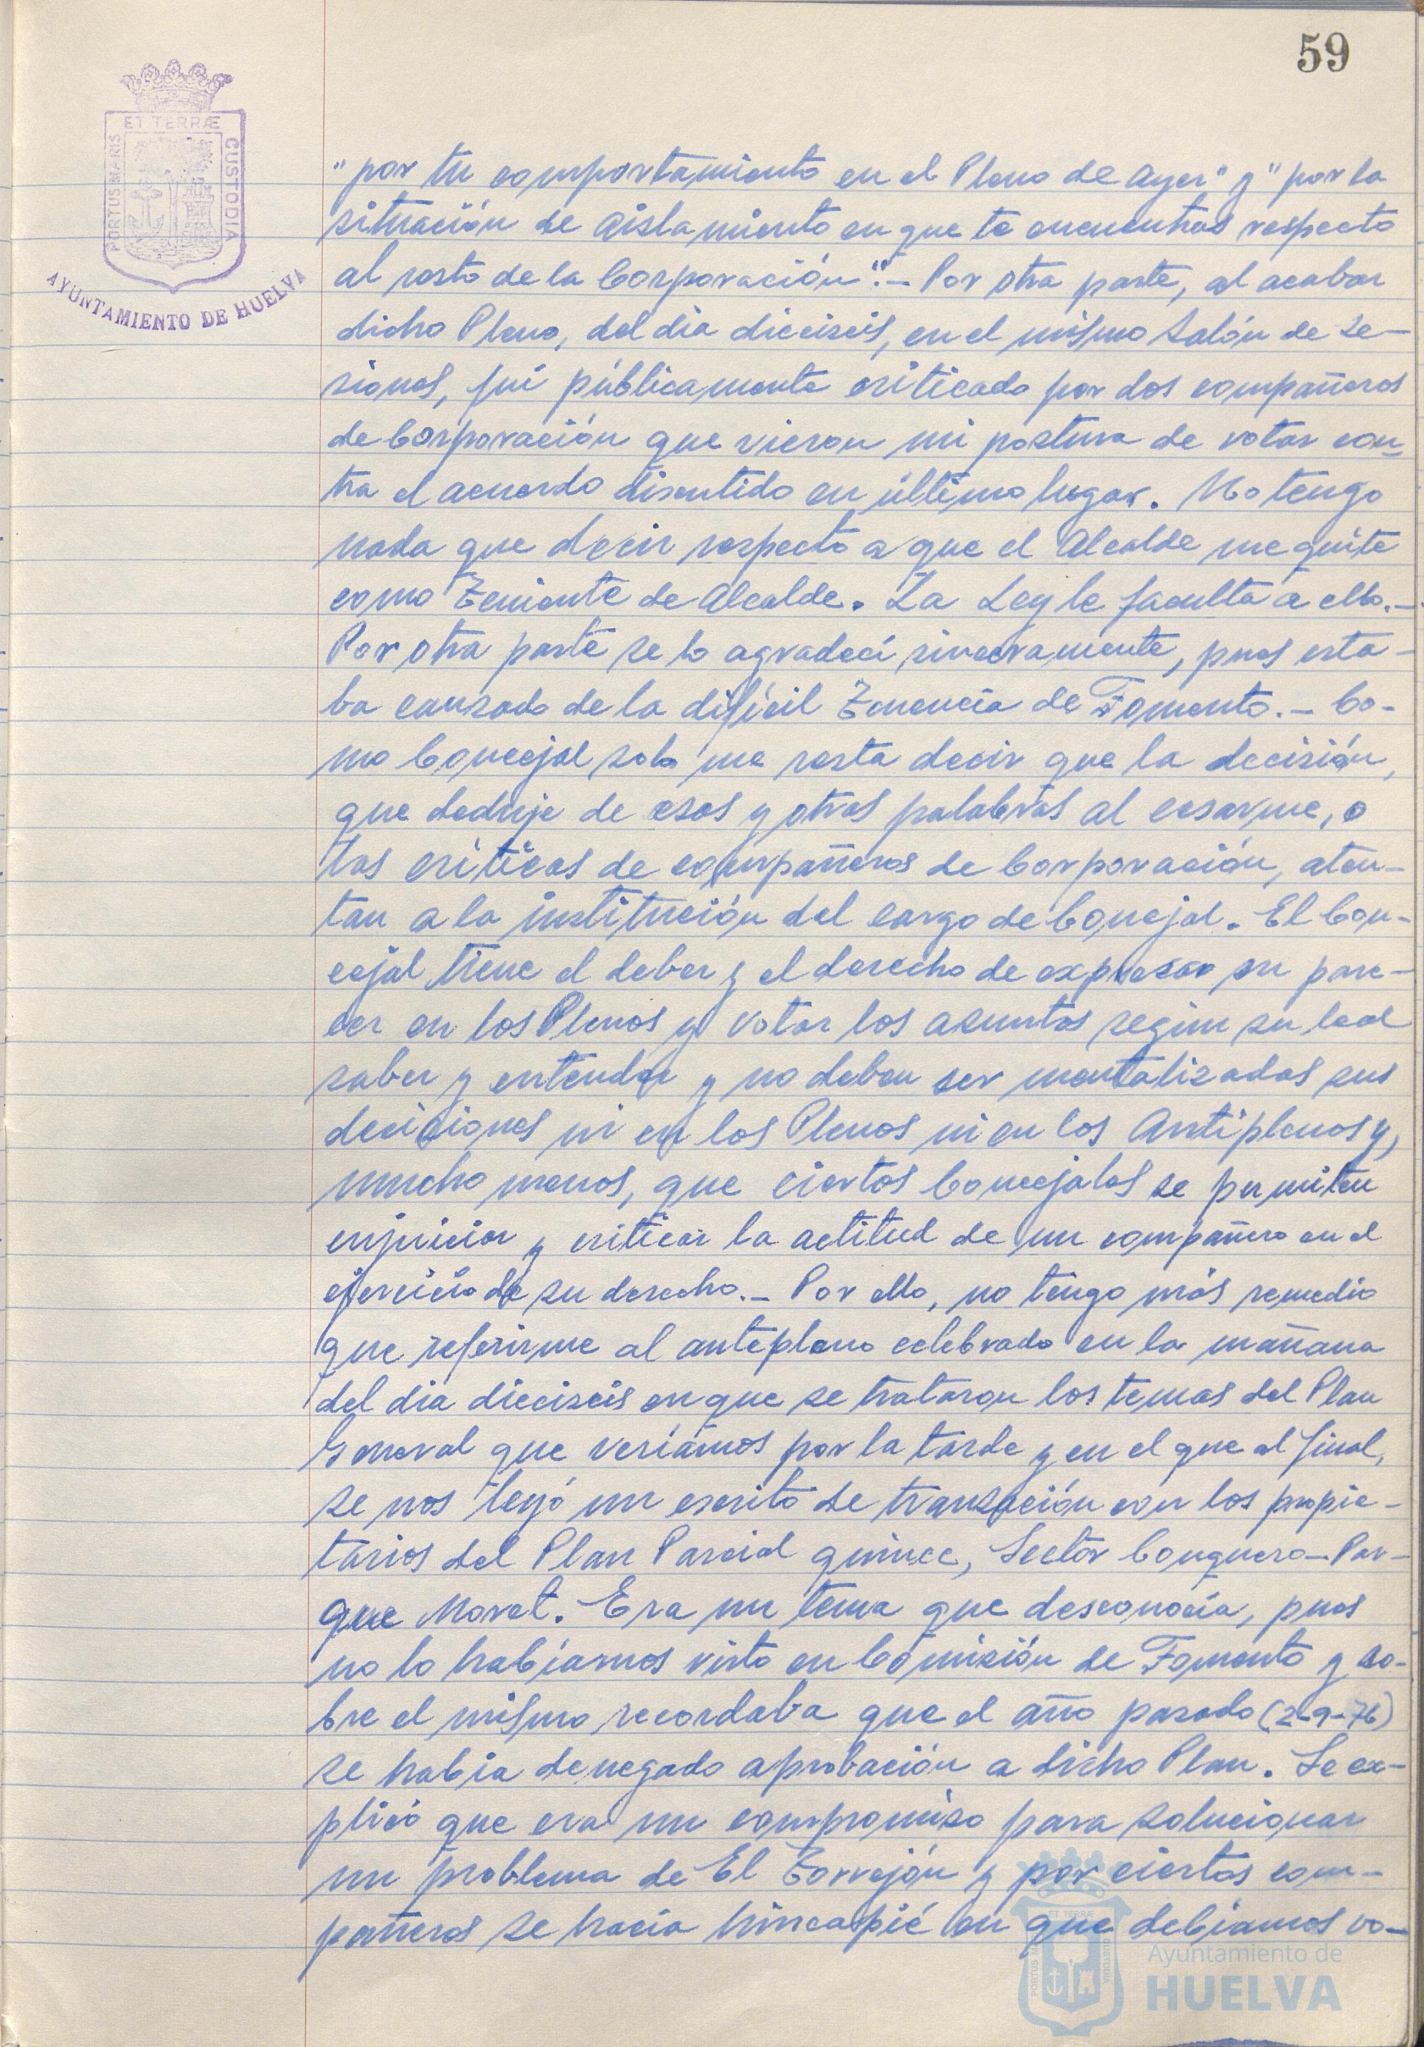 59
ET TERRÆ
PORTUS MARIS
CUSTODIA
AYUNTAMIENTO DE HUELVA
"por tu comportamiento en el Pleno de ayer" y "por la
situación de aislamiento en que te encuentras respecto
al resto de la Corporación".- Por otra parte, al acabar
dicho Pleno, del dia dieciseis, en el mismo Salón de Se-
siones, fuí públicamente criticado por dos compañeros
de Corporación que vieron mi postura de votar con-
tra el acuerdo discutido en último lugar. No tengo
nada que decir respecto a que el Alcalde me quite
como Teniente de Alcalde. La Ley le faculta a ello.-
Por otra parte se lo agradecí sinceramente, pues esta-
ba cansado de la difícil Tenencia de Fomento.- Co-
mo Concejal solo me resta decir que la decisión,
que deduje de esas y otras palabras al cesarme, o
las críticas de compañeros de Corporación, aten-
tan a la institución del cargo de Concejal. El Con-
cejal tiene el deber y el derecho de expresar su pare-
cer en los Plenos y votar los asuntos según su leal
saber y entender y no deben ser mentalizadas sus
decisiones ni en los Plenos ni en los Antiplenos y,
mucho menos, que ciertos Concejales se permitan
enjuiciar y criticar la actitud de un compañero en el
ejercicio de su derecho.- Por ello, no tengo más remedio
que referirme al antepleno celebrado en la mañana
del dia dieciseis en que se trataron los temas del Plan
General que veríamos por la tarde y en el que al final,
se nos leyó un escrito de transación con los propie-
tarios del Plan Parcial quince, Sector Conquero-Par-
que Moret. Era un tema que desconocía, pues
no lo habíamos visto en Comisión de Fomento y so-
bre el mismo recordaba que el año pasado (2-9-76)
se había denegado aprobación a dicho Plan. Se ex-
plicó que era un compromiso para solucionar
un problema de El Torrejón y por ciertos com-
pañeros se hacía hincapié en que debíamos vo-
Ayuntamiento de
HUELVA